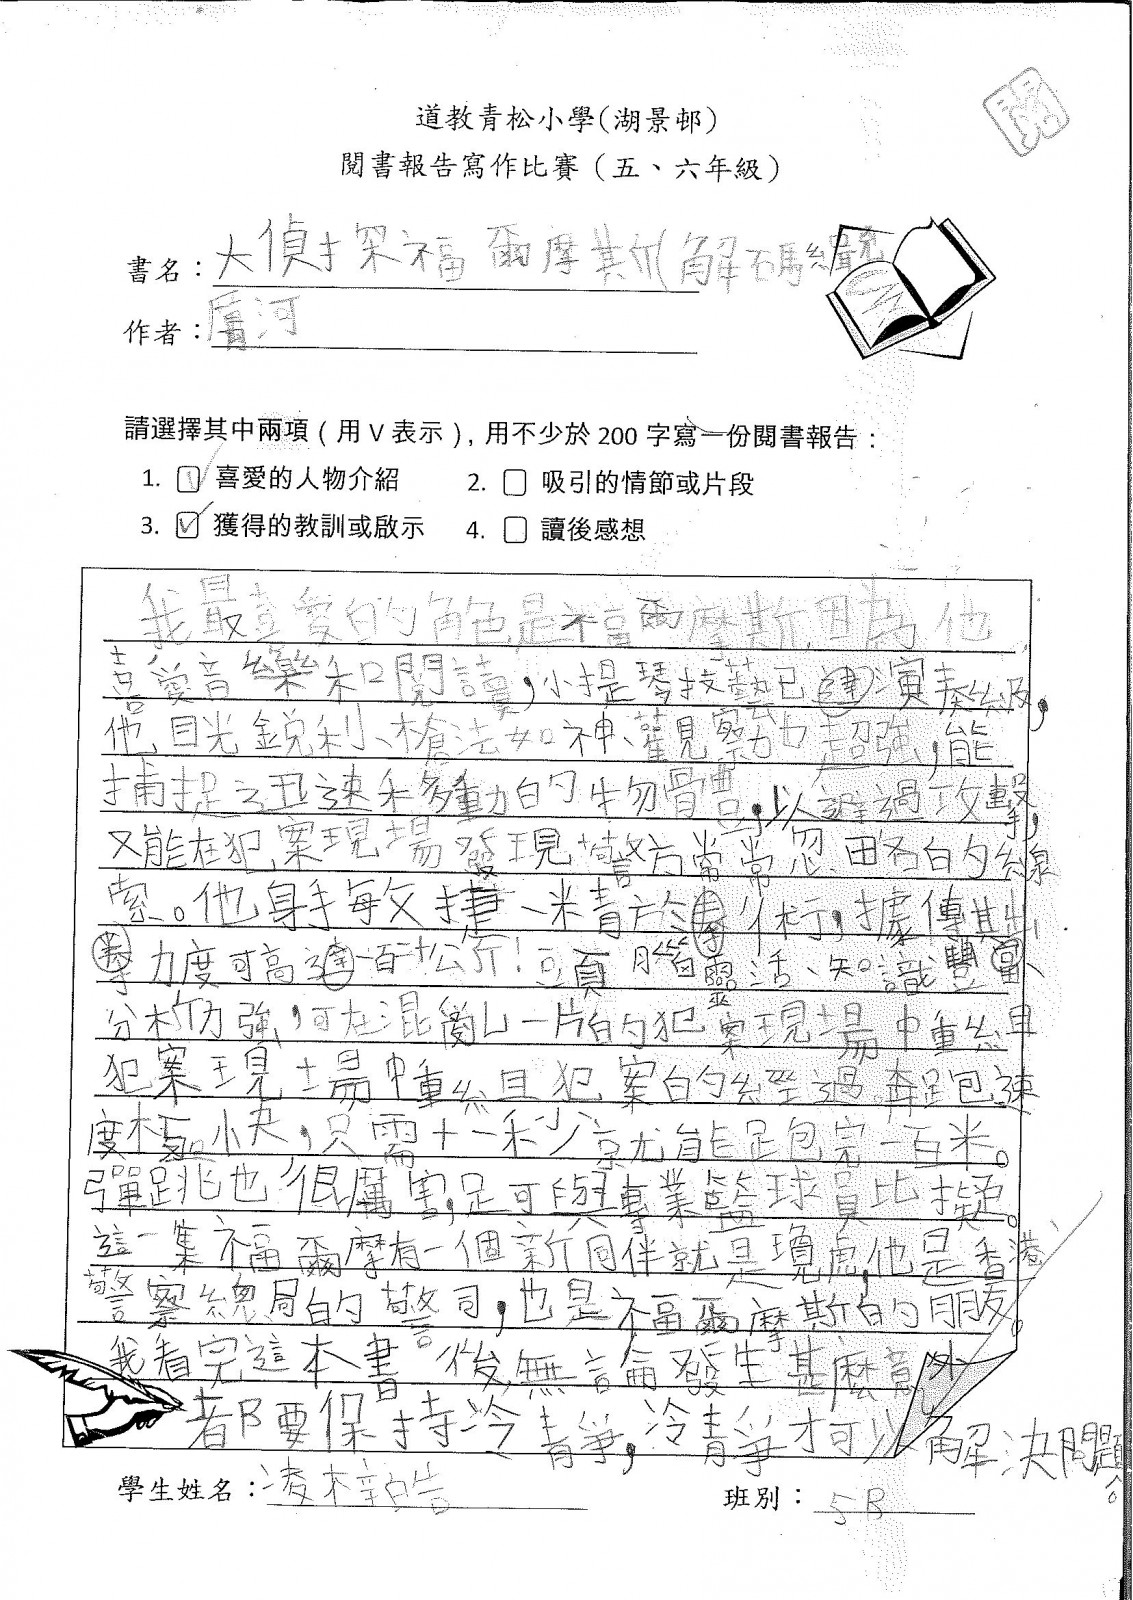 閱
道教青松小學(湖景邨)
閱書報告寫作比賽(五、六年級)
書名：大偵探福爾摩斯(解碼緝兇
作者：厲河
請選擇其中兩項(用V表示)，用不少於200字寫一份閱書報告：
1. ☑ 喜愛的人物介紹 2. ☐ 吸引的情節或片段
3. ☑ 獲得的教訓或啟示 4. ☐ 讀後感想
我最喜愛的角色是福爾摩斯,因為他
喜愛音樂和閱讀,小提琴技藝已達演奏級,
他目光銳利、槍法如神、觀察力超強,能
捕捉高速移動的物體,以避過攻擊,
又能在犯案現場發現警方常常忽略的線
索。他身手敏捷,精於拳術,據傳其出
拳力度可高達百公斤!頭腦靈活、知識豐富、
分析力強,可在混亂一片的犯案現場中重組
犯案現場中重組犯案的經過奔跑速
度極快,只需十一秒就能跑完一百米。
彈跳也很厲害,足可與專業籃球員比擬。
這一集福爾摩有一個新同伴就是瓊虎,他是香港
警察總局的警司,也是福爾摩斯的朋友。
我看完這本書後,無論發生甚麼意外
都要保持冷靜,冷靜才可以解決問題。
學生姓名： 班別：5B